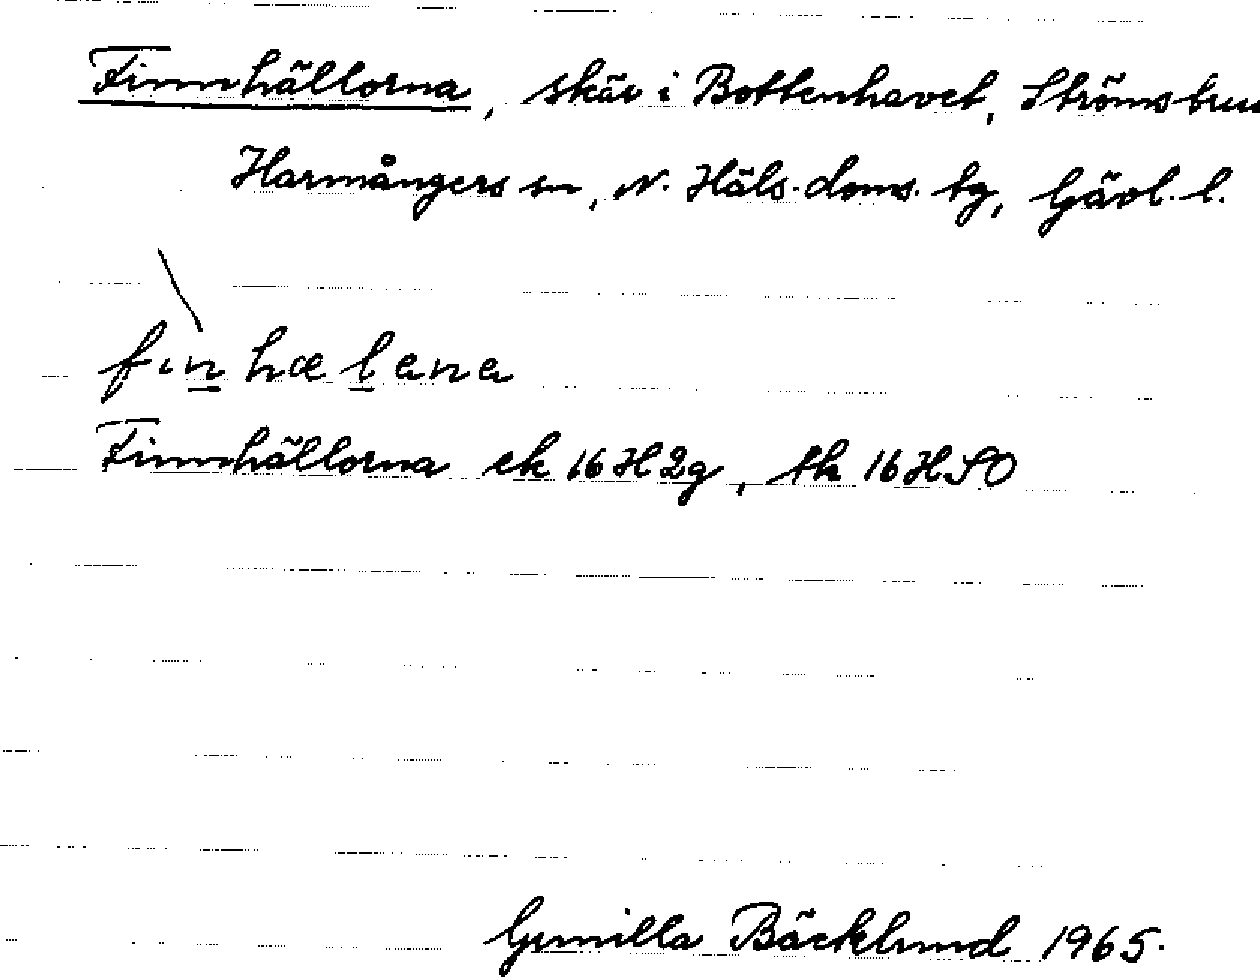 Finnhällorna, skär i Bottenhavet, Strömsbru
Harmångers sn, N. Häls. doms. tg, Gävl. l.
fın̲ hæl̲ana
Finnhällorna ek 16H2g, tk 16HSO
Gunilla Bäcklund 1965.